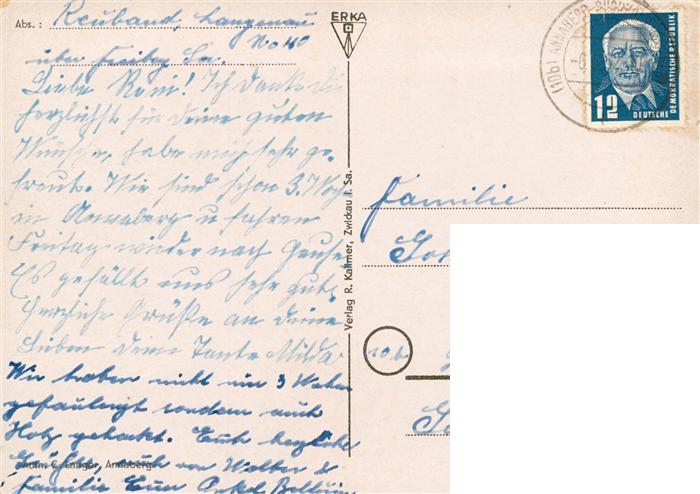 Abs.: Reuband, Langenau
No 40
über Freiberg Sa.
Liebe Roni! Ich danke dir
herzlichst für deine guten
Wünsche, habe mich sehr ge-
freut. Wir sind schon 3 Woch
in Annaberg u fahren
Freitag wieder nach Hause
Es gefällt uns sehr gut.
Herzliche Grüße an deine
Lieben deine Tante Milda
Wir haben nicht nur 3 Wochen
gefaulenzt sondern auch
Holz gehackt. Euch herzliche
Grüße, auch von Walter &
Familie Euer Onkel
Aufn. C. Langer, Annaberg
ERKA
Verlag R. Kallmer, Zwickau i. Sa.
(10b) ANNABERG-BUCHHOLZ
12
DEUTSCHE
DEMOKRATISCHE REPUBLIK
Familie
10b